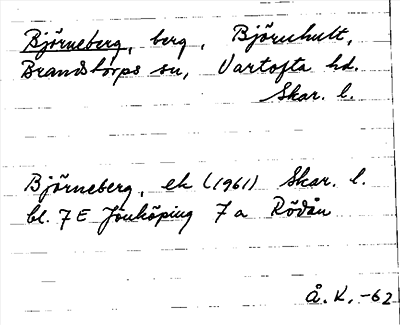 Björneberg, berg, Björnhult,
Brandstorps sn, Vartofta hd.
Skar. l.
Björneberg, ek (1961) Skar. l.
bl. 7E Jönköping 7a Rödån
Å. K. -62